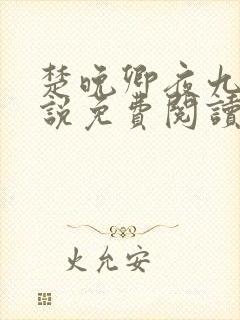 楚晚卿夜九
說免費閱讀
火允安